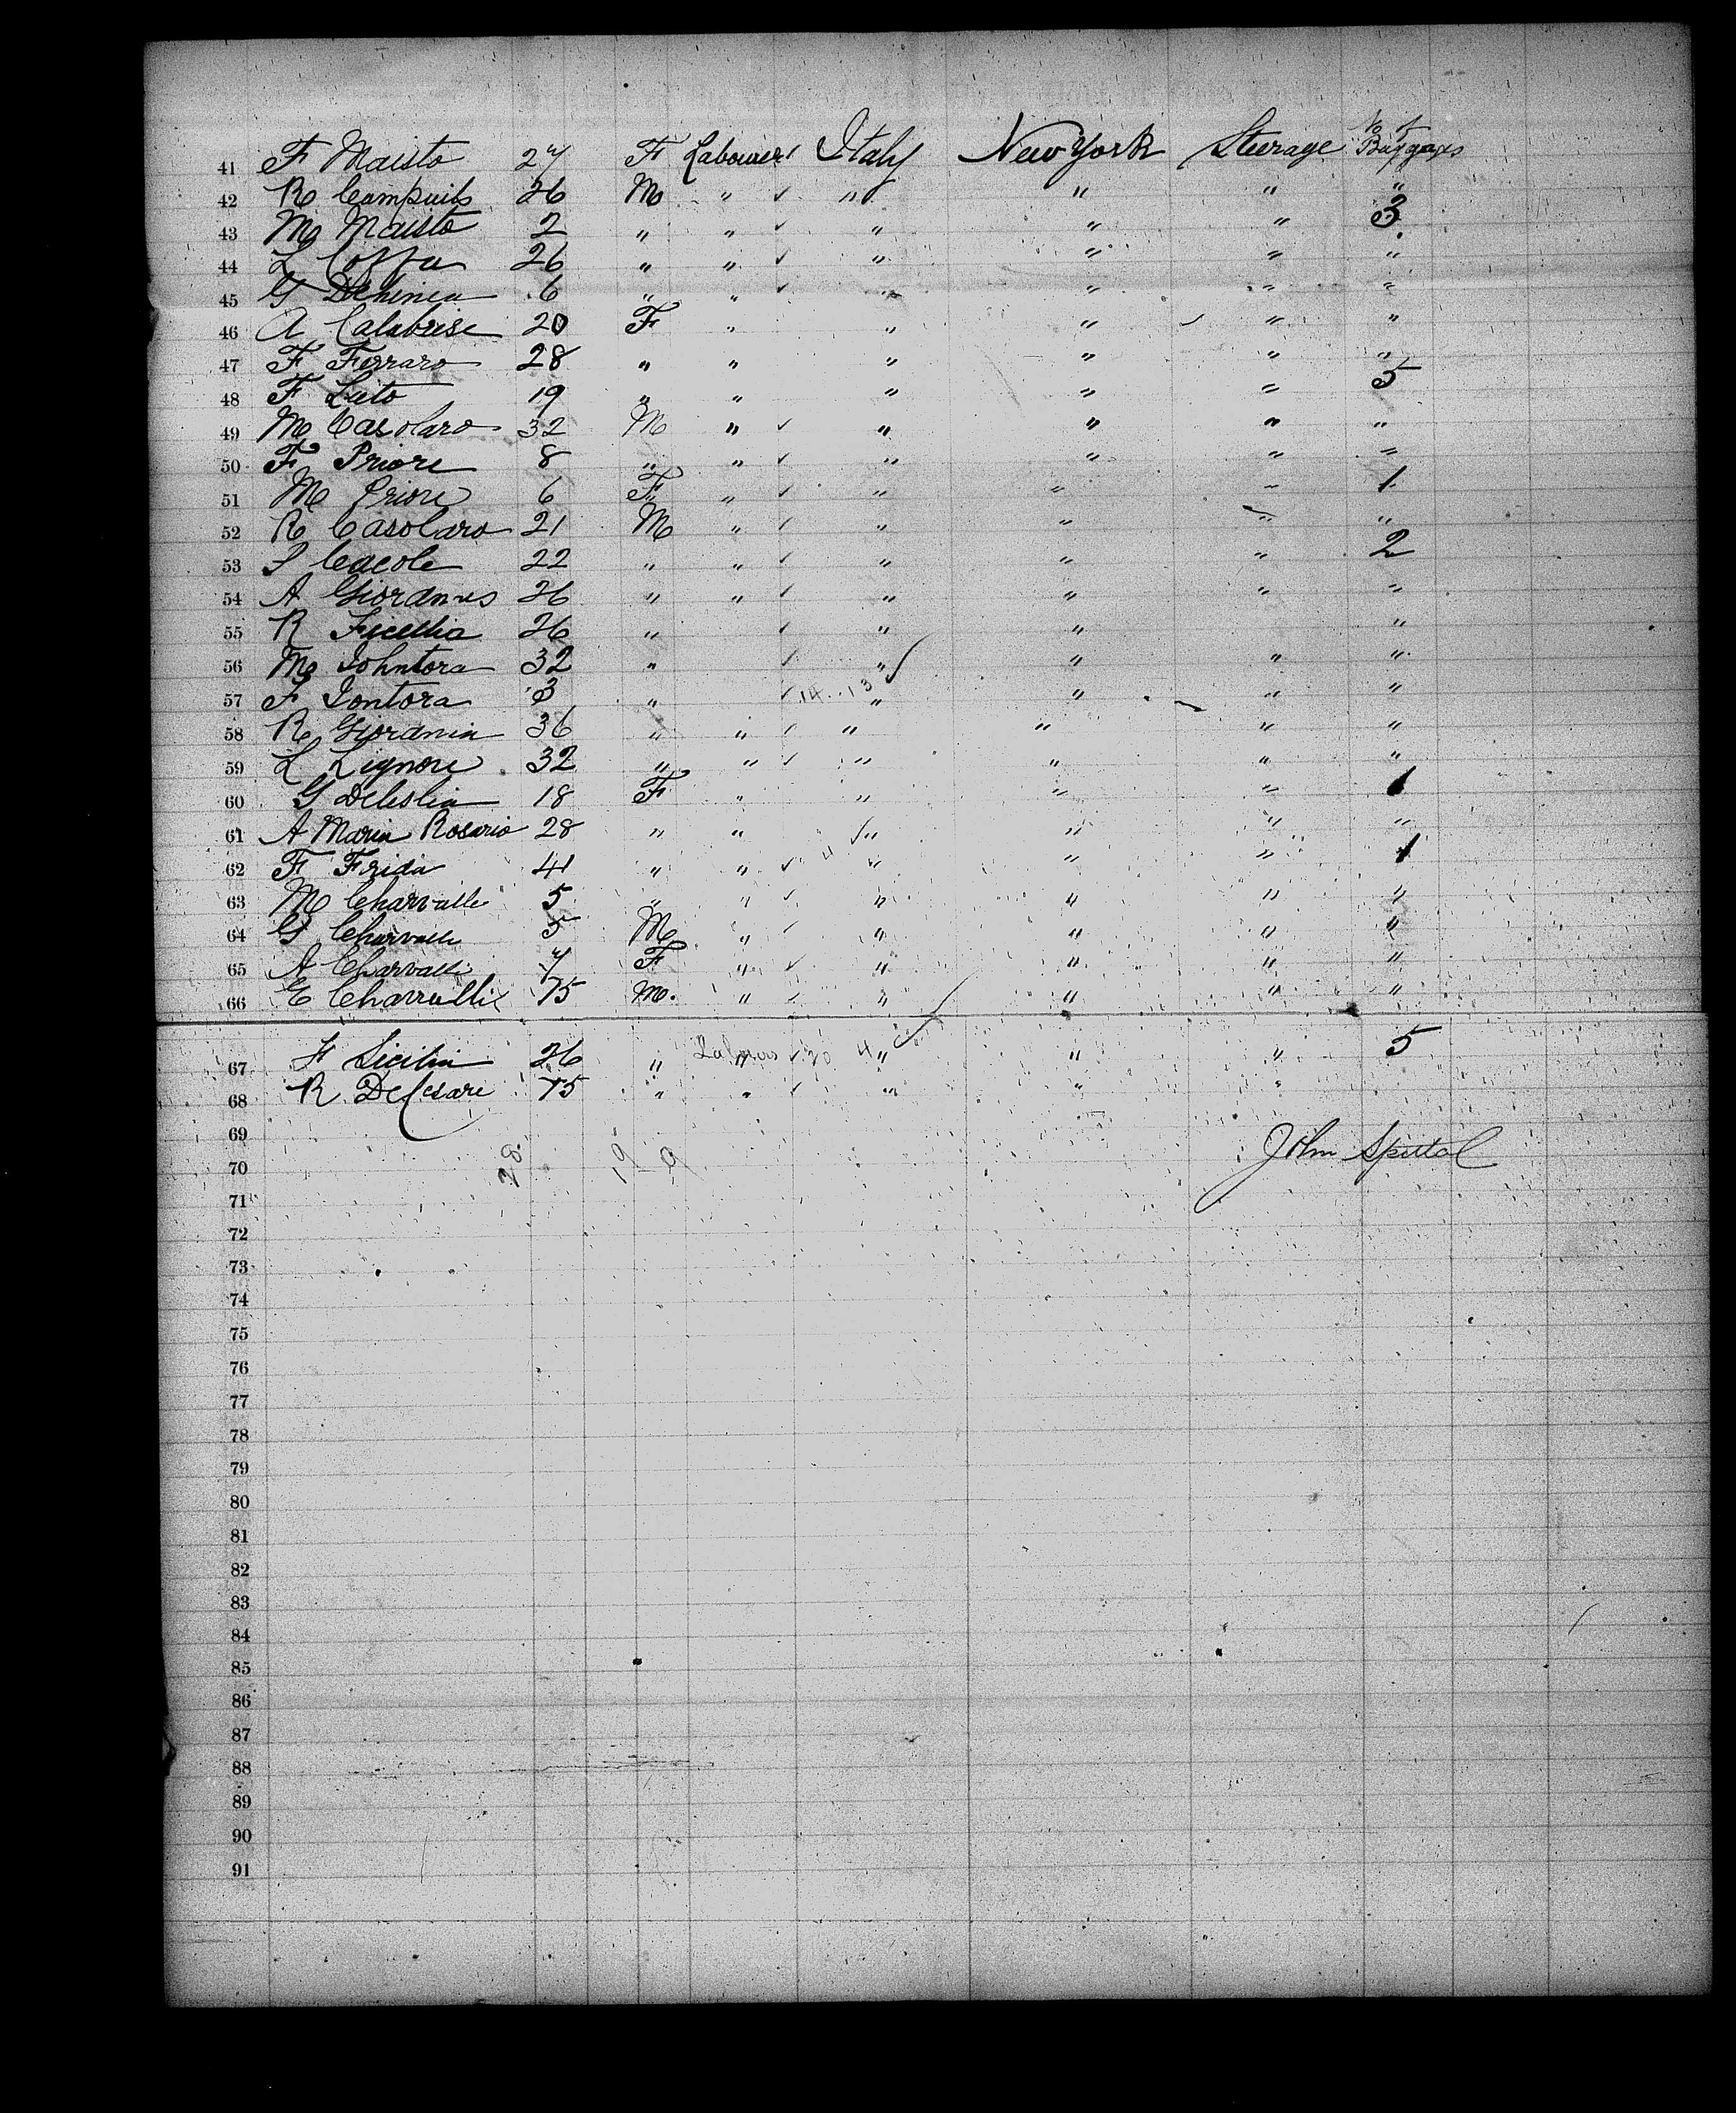 No of
41 F Maisto 27 F Labourer Italy New York Steerage Baggages
42 R 26 M " " " " "
43 M Maisto 2 " " " " " 3
44 L 26 " " " " " "
45 G 6 " " " " " "
46 A Calabrise 20 F " " " " "
47 F Ferraro 28 " " " " " "
48 F Lieto 19 " " " " " 5
49 M Casolaro 32 M " " " " "
50 F Priore 8 " " " " " "
51 M Priore 6 F " " " " 1
52 R Casolaro 21 M " " " " "
53 S Cacole 22 " " " " " 2
54 A 26 " " " " " "
55 R 26 " " " "
56 M Johntora 32 " " " " "
57 F Jontora 3 " 14 13 " " " "
58 R Giordnia 36 " " " " " "
59 L Lignore 32 " " " " " "
60 G Deleslia 18 F " " " " 1
61 A Maria Rosario 28 " " " " " "
62 F Frida 41 " " 4 " " " 1
63 M Charvalle 5 " " " " " "
64 G Charvalli 5 M " " " " "
65 A Charvalli 7 F " " " " "
66 E Charvulli 75 M. " " " " "
67 F Sicilia 26 " " 20 4 " " " 5
68 R. DeCesare 75 " " " " "
69 John Spittal
70 28 19 9
71
72
73
74
75
76
77
78
79
80
81
82
83
84
85
86
87
88
89
90
91